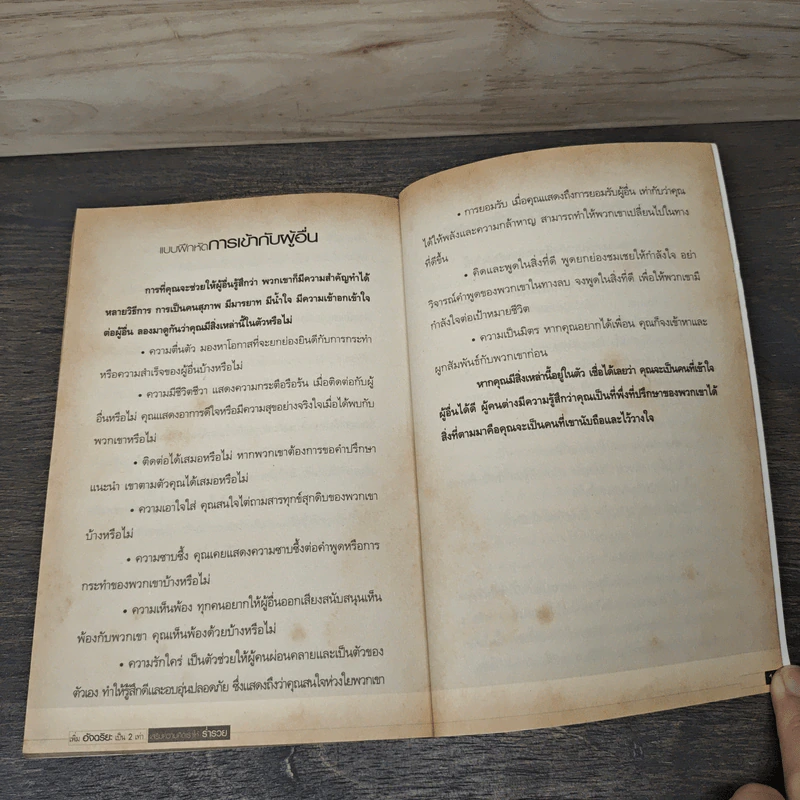 แบบฝึกหัดการเข้ากับผู้อื่น
การที่คุณจะช่วยให้ผู้อื่นรู้สึกว่า พวกเขาก็มีความสำคัญทำได้
หลายวิธีการ การเป็นคนสุภาพ มีมารยาท มีน้ำใจ มีความเข้าอกเข้าใจ
ต่อผู้อื่น ลองมาดูกันว่าคุณมีสิ่งเหล่านี้ในตัวหรือไม่
• ความตื่นตัว มองหาโอกาสที่จะยกย่องยินดีกับการกระทำ
หรือความสำเร็จของผู้อื่นบ้างหรือไม่
• ความมีชีวิตชีวา แสดงความกระตือรือร้น เมื่อติดต่อกับผู้
อื่นหรือไม่ คุณแสดงอาการดีใจหรือมีความสุขอย่างจริงใจเมื่อได้พบกับ
พวกเขาหรือไม่
• ติดต่อได้เสมอหรือไม่ หากพวกเขาต้องการขอคำปรึกษา
แนะนำ เขาตามตัวคุณได้เสมอหรือไม่
• ความเอาใจใส่ คุณสนใจไต่ถามสารทุกข์สุกดิบของพวกเขา
บ้างหรือไม่
• ความซาบซึ้ง คุณเคยแสดงความซาบซึ้งต่อคำพูดหรือการ
กระทำของพวกเขาบ้างหรือไม่
• ความเห็นพ้อง ทุกคนอยากให้ผู้อื่นออกเสียงสนับสนุนเห็น
พ้องกับพวกเขา คุณเห็นพ้องด้วยบ้างหรือไม่
• ความรักใคร่ เป็นตัวช่วยให้ผู้คนผ่อนคลายและเป็นตัวของ
ตัวเอง ทำให้รู้สึกดีและอบอุ่นปลอดภัย ซึ่งแสดงถึงว่าคุณสนใจห่วงใยพวกเขา
เพิ่ม อัจฉริยะ เป็น 2 เท่า เสริมความคิดพาให้ ร่ำรวย
• การยอมรับ เมื่อคุณแสดงถึงการยอมรับผู้อื่น เท่ากับว่าคุณ
ได้ให้พลังและความกล้าหาญ สามารถทำให้พวกเขาเปลี่ยนไปในทาง
ที่ดีขึ้น
• คิดและพูดในสิ่งที่ดี พูดยกย่องชมเชยให้กำลังใจ อย่า
วิจารณ์คำพูดของพวกเขาในทางลบ จงพูดในสิ่งที่ดี เพื่อให้พวกเขามี
กำลังใจต่อเป้าหมายชีวิต
• ความเป็นมิตร หากคุณอยากได้เพื่อน คุณก็จงเข้าหาและ
ผูกสัมพันธ์กับพวกเขาก่อน
หากคุณมีสิ่งเหล่านี้อยู่ในตัว เชื่อได้เลยว่า คุณจะเป็นคนที่เข้าใจ
ผู้อื่นได้ดี ผู้คนต่างมีความรู้สึกว่าคุณเป็นที่พึ่งที่ปรึกษาของพวกเขาได้
สิ่งที่ตามมาคือคุณจะเป็นคนที่เขานับถือและไว้วางใจ